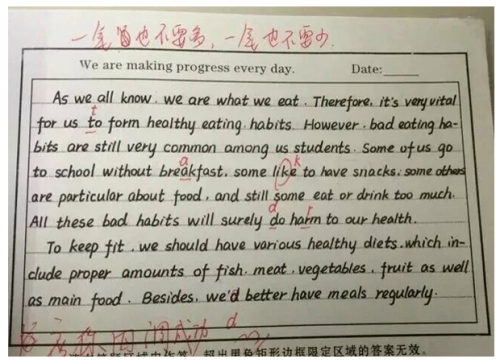 一笔画也不要多，一笔也不要少.
We are making progress every day. Date:
As we all know, we are what we eat. Therefore, it's very vital
t
for us to form healthy eating habits. However, bad eating ha-
bits are still very common among us students. Some of us go
a k
to school without breakfast, some like to have snacks; some others
are particular about food, and still some eat or drink too much.
d r
All these bad habits will surely do harm to our health.
To keep fit, we should have various healthy diets, which in-
clude proper amounts of fish, meat, vegetables, fruit as well
as main food. Besides, we'd better have meals regularly.
成功 d
超出黑色矩形边框限定区域的答案无效。